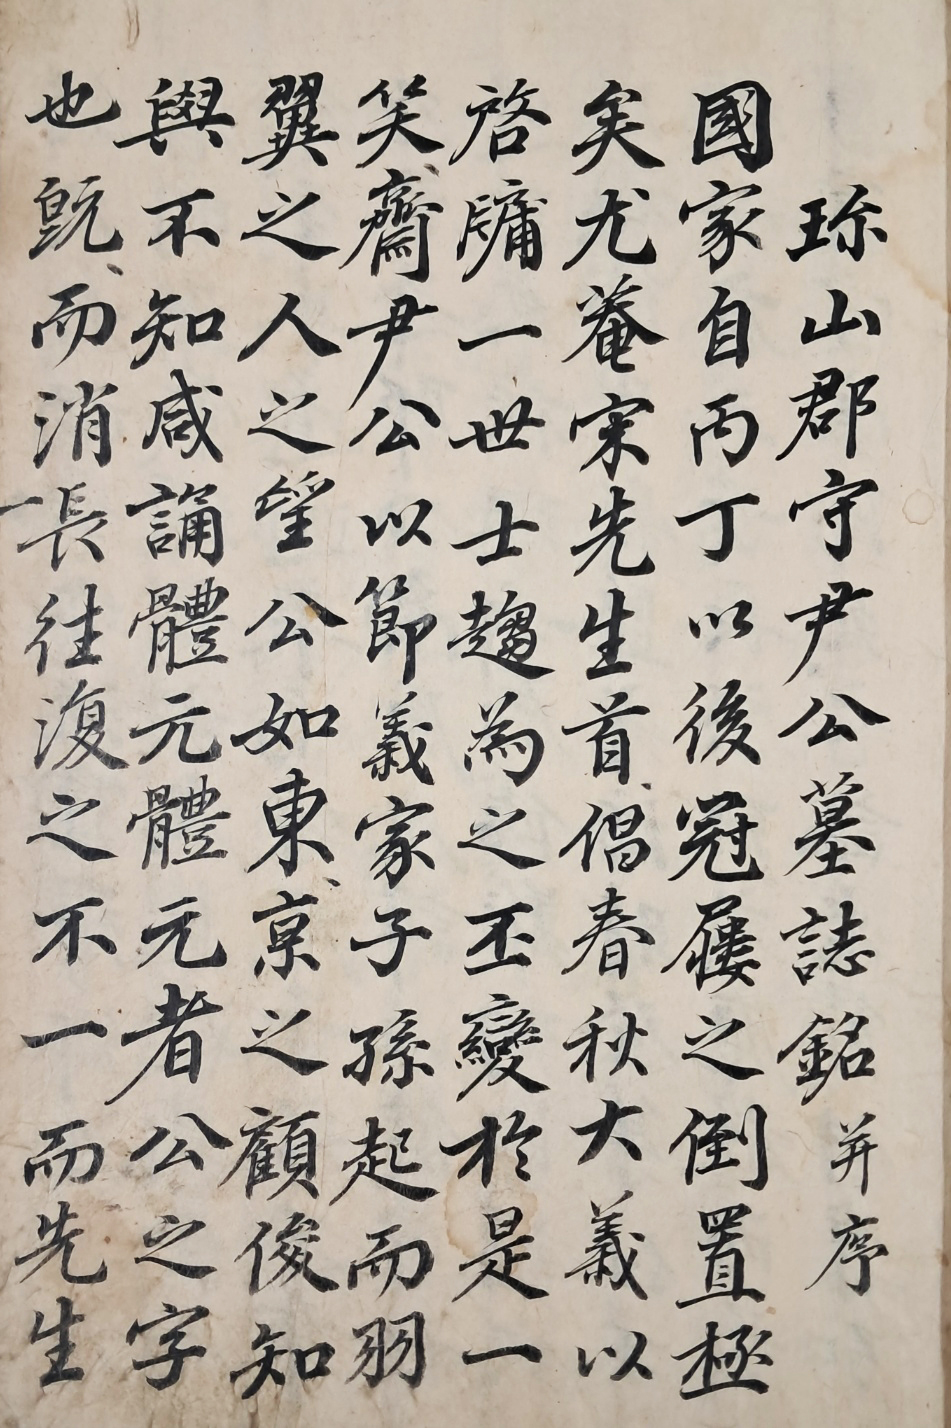 珎山郡守尹公墓誌銘并序
國家自丙丁以後冠屨之倒置極
矣尤菴宋先生首倡春秋大義以
啓牖一世士趨為之丕變於是一
笑齋尹公以節義家子孫起而羽
翼之人之望公如東京之顧俊知
與不知咸誦體元體元者公之字
也旣而消長往復之不一而先生